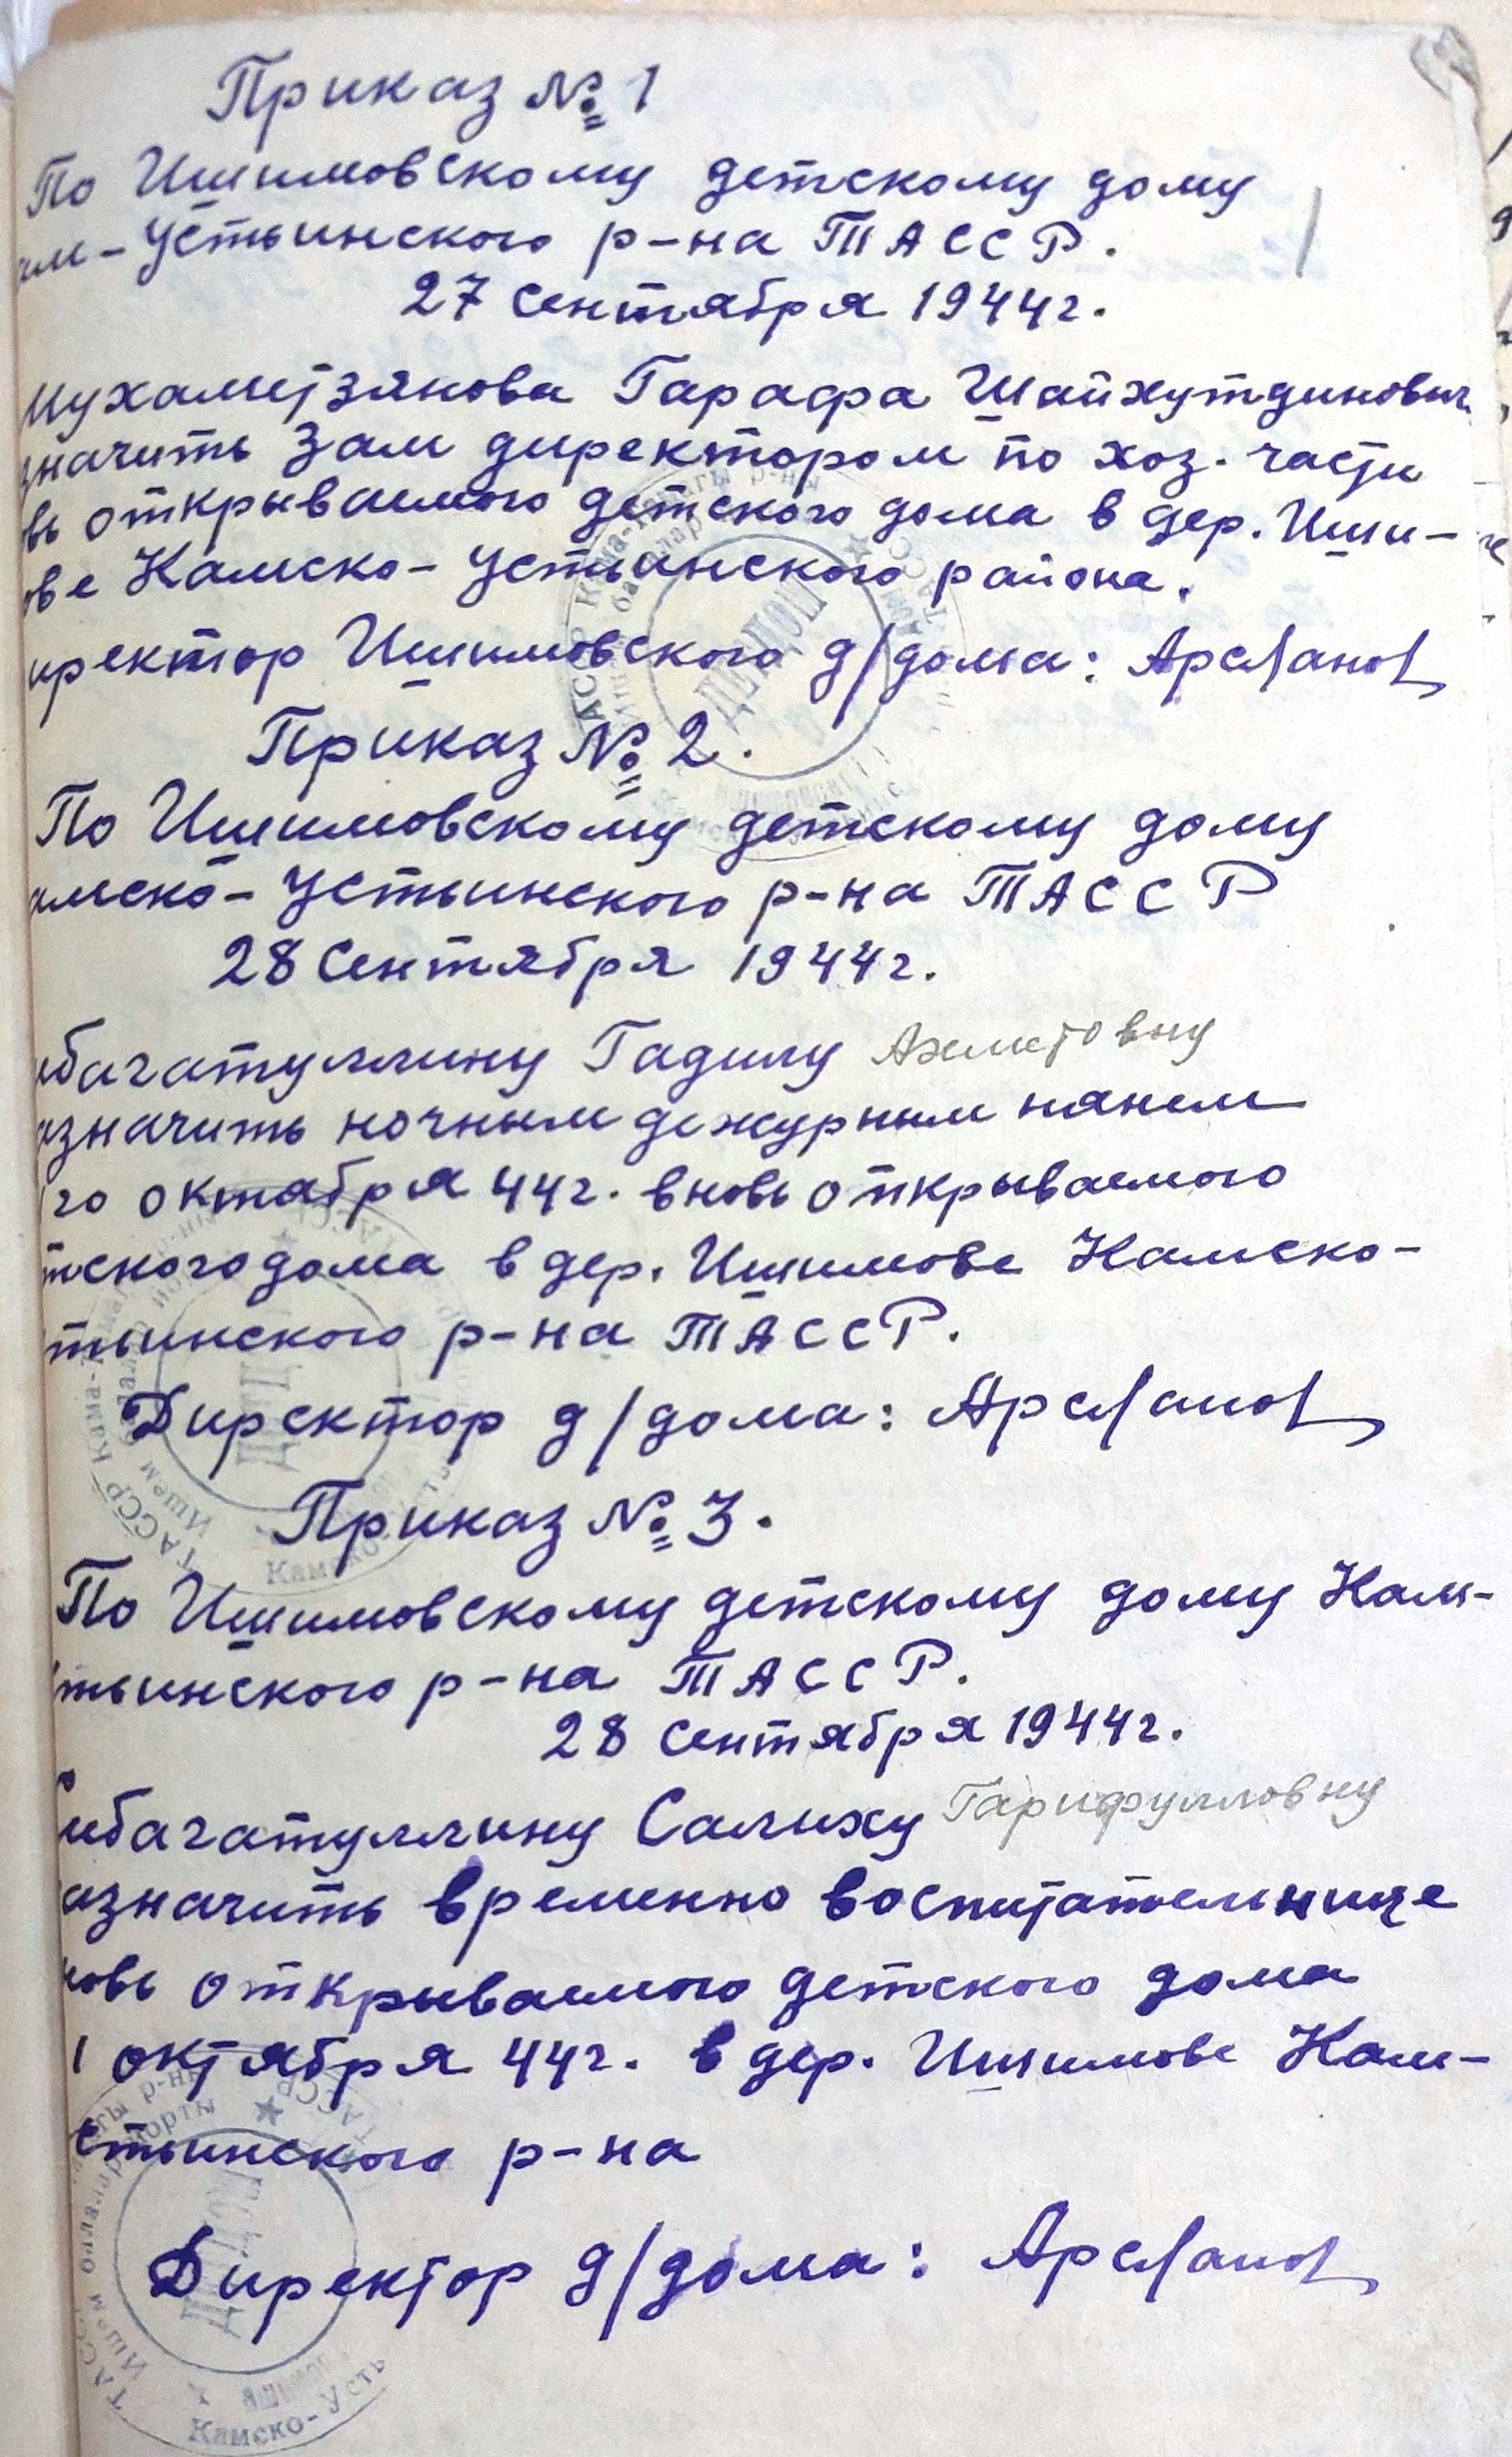 Приказ № 1
1
По Ишимовскому детскому дому
ам-Устьинского р-на ТАССР.
27 сентября 1944г.
Мухаметзянова Гарафа Шайхутдинович
значить зам директором по хоз. части
вь открываемого детского дома в дер. Иши-
ове Камско-Устьинского района.
иректор Ишимовского д/дома: Арсланов
Приказ № 2.
По Ишимовскому детскому дому
амско-Устьинского р-на ТАССР
28 сентября 1944г.
ибагатуллину Гадилу Ахметовну
азначить ночным дежурным нянем
го октября 44г. вновь открываемого
тскогодома в дер. Ишимове Камско-
тьинского р-на ТАССР.
Директор д/дома: Арсланов
Приказ № 3.
По Ишимовскому детскому дому Кам-
тьинского р-на ТАССР.
28 сентября 1944г.
ибагатуллину Салиху Гарифулловну
азначить временно воспитательнице
новь открываемого детского дома
1 октября 44г. в дер. Ишимове Кам-
стьинского р-на
Директор д/дома: Арсланов
ДЕТДОМ
Камско-Усть